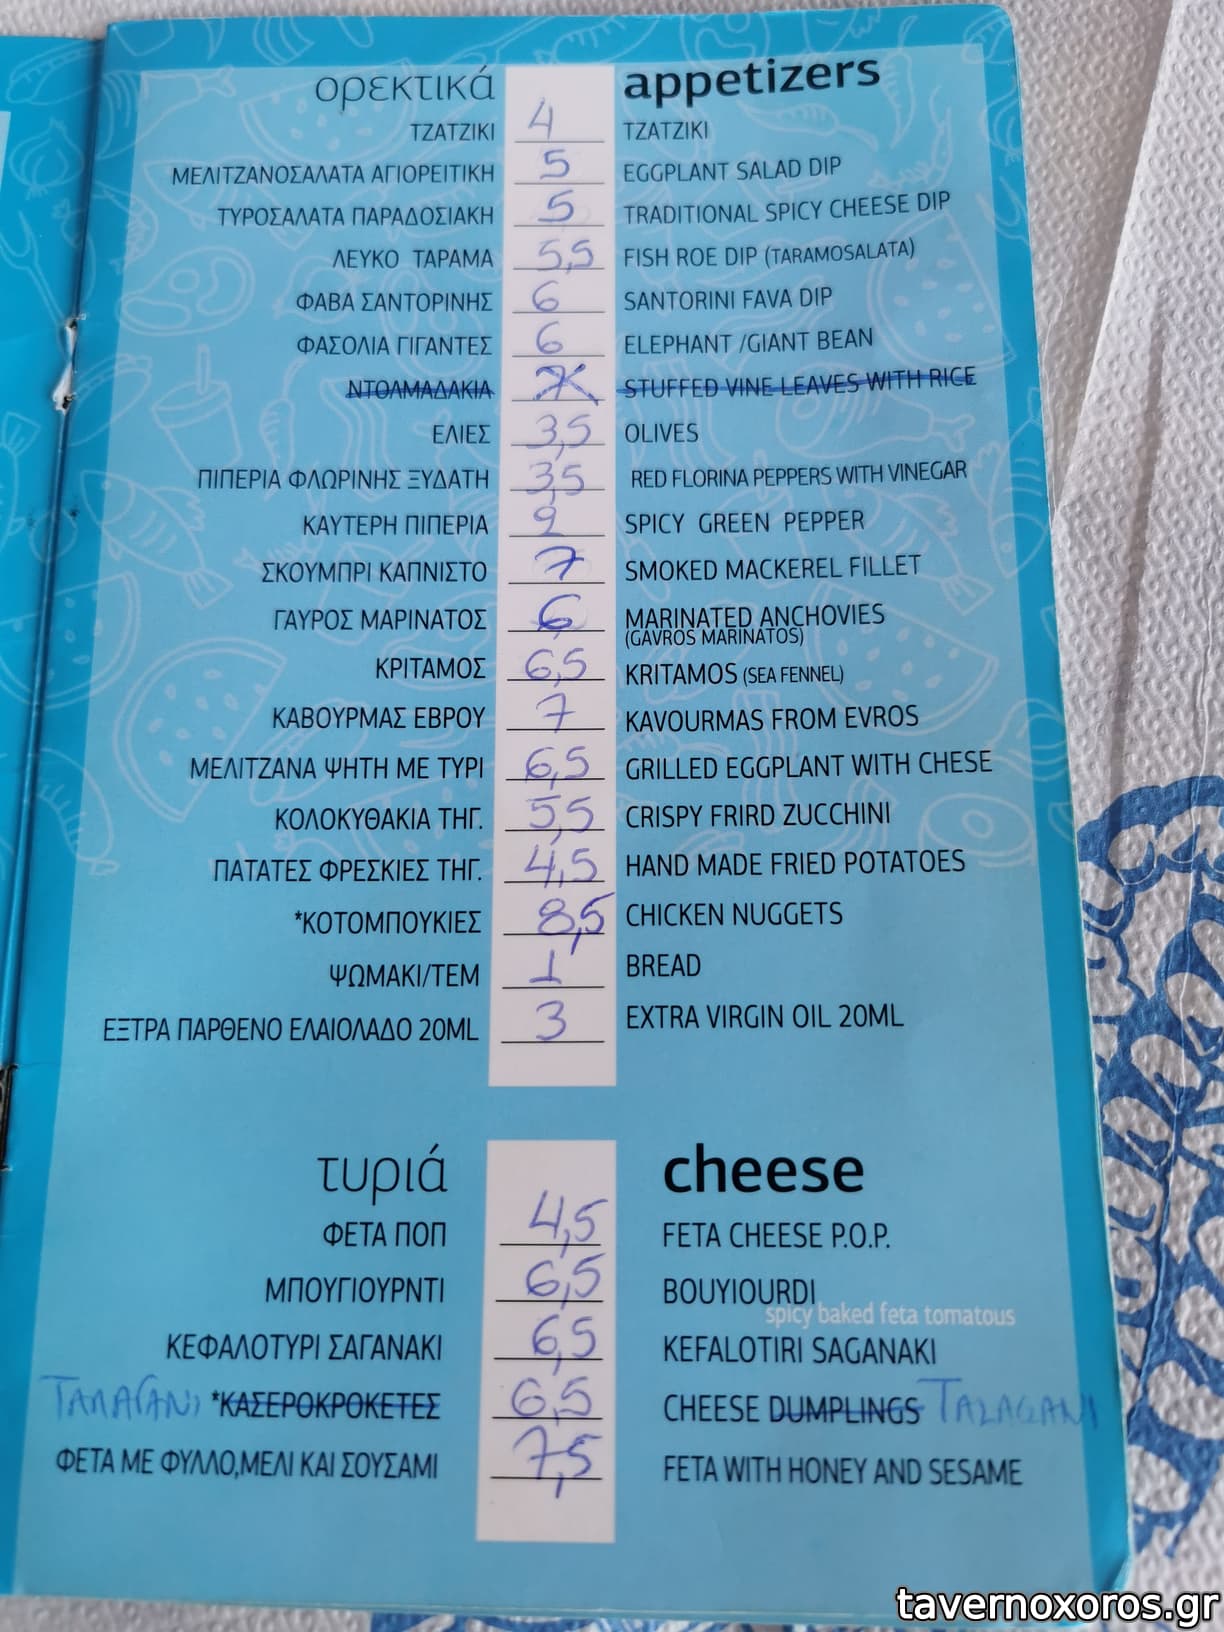 ορεκτικά appetizers
ΤΖΑΤΖΙΚΙ 4 TZATZIKI
ΜΕΛΙΤΖΑΝΟΣΑΛΑΤΑ ΑΓΙΟΡΕΙΤΙΚΗ 5 EGGPLANT SALAD DIP
ΤΥΡΟΣΑΛΑΤΑ ΠΑΡΑΔΟΣΙΑΚΗ 5 TRADITIONAL SPICY CHEESE DIP
ΛΕΥΚΟ ΤΑΡΑΜΑ 5,5 FISH ROE DIP (TARAMOSALATA)
ΦΑΒΑ ΣΑΝΤΟΡΙΝΗΣ 6 SANTORINI FAVA DIP
ΦΑΣΟΛΙΑ ΓΙΓΑΝΤΕΣ 6 ELEPHANT /GIANT BEAN
ΝΤΟΛΜΑΔΑΚΙΑ 7 STUFFED VINE LEAVES WITH RICE
ΕΛΙΕΣ 3,5 OLIVES
ΠΙΠΕΡΙΑ ΦΛΩΡΙΝΗΣ ΞΥΔΑΤΗ 3,5 RED FLORINA PEPPERS WITH VINEGAR
ΚΑΥΤΕΡΗ ΠΙΠΕΡΙΑ 2 SPICY GREEN PEPPER
ΣΚΟΥΜΠΡΙ ΚΑΠΝΙΣΤΟ 7 SMOKED MACKEREL FILLET
ΓΑΥΡΟΣ ΜΑΡΙΝΑΤΟΣ 6 MARINATED ANCHOVIES
(GAVROS MARINATOS)
ΚΡΙΤΑΜΟΣ 6,5 KRITAMOS (SEA FENNEL)
ΚΑΒΟΥΡΜΑΣ ΕΒΡΟΥ 7 KAVOURMAS FROM EVROS
ΜΕΛΙΤΖΑΝΑ ΨΗΤΗ ΜΕ ΤΥΡΙ 6,5 GRILLED EGGPLANT WITH CHESE
ΚΟΛΟΚΥΘΑΚΙΑ ΤΗΓ. 5,5 CRISPY FRIRD ZUCCHINI
ΠΑΤΑΤΕΣ ΦΡΕΣΚΙΕΣ ΤΗΓ. 4,5 HAND MADE FRIED POTATOES
*ΚΟΤΟΜΠΟΥΚΙΕΣ 8,5 CHICKEN NUGGETS
ΨΩΜΑΚΙ/ΤΕΜ 1 BREAD
ΕΞΤΡΑ ΠΑΡΘΕΝΟ ΕΛΑΙΟΛΑΔΟ 20ML 3 EXTRA VIRGIN OIL 20ML
τυριά cheese
ΦΕΤΑ ΠΟΠ 4,5 FETA CHEESE P.O.P.
ΜΠΟΥΓΙΟΥΡΝΤΙ 6,5 BOUYIOURDI
spicy baked feta tomatous
ΚΕΦΑΛΟΤΥΡΙ ΣΑΓΑΝΑΚΙ 6,5 KEFALOTIRI SAGANAKI
ΤΑΛΑΓΑΝΙ *ΚΑΣΕΡΟΚΡΟΚΕΤΕΣ 6,5 CHEESE DUMPLINGS TALAGANI
ΦΕΤΑ ΜΕ ΦΥΛΛΟ,ΜΕΛΙ ΚΑΙ ΣΟΥΣΑΜΙ 7,5 FETA WITH HONEY AND SESAME
tavernoxoros.gr